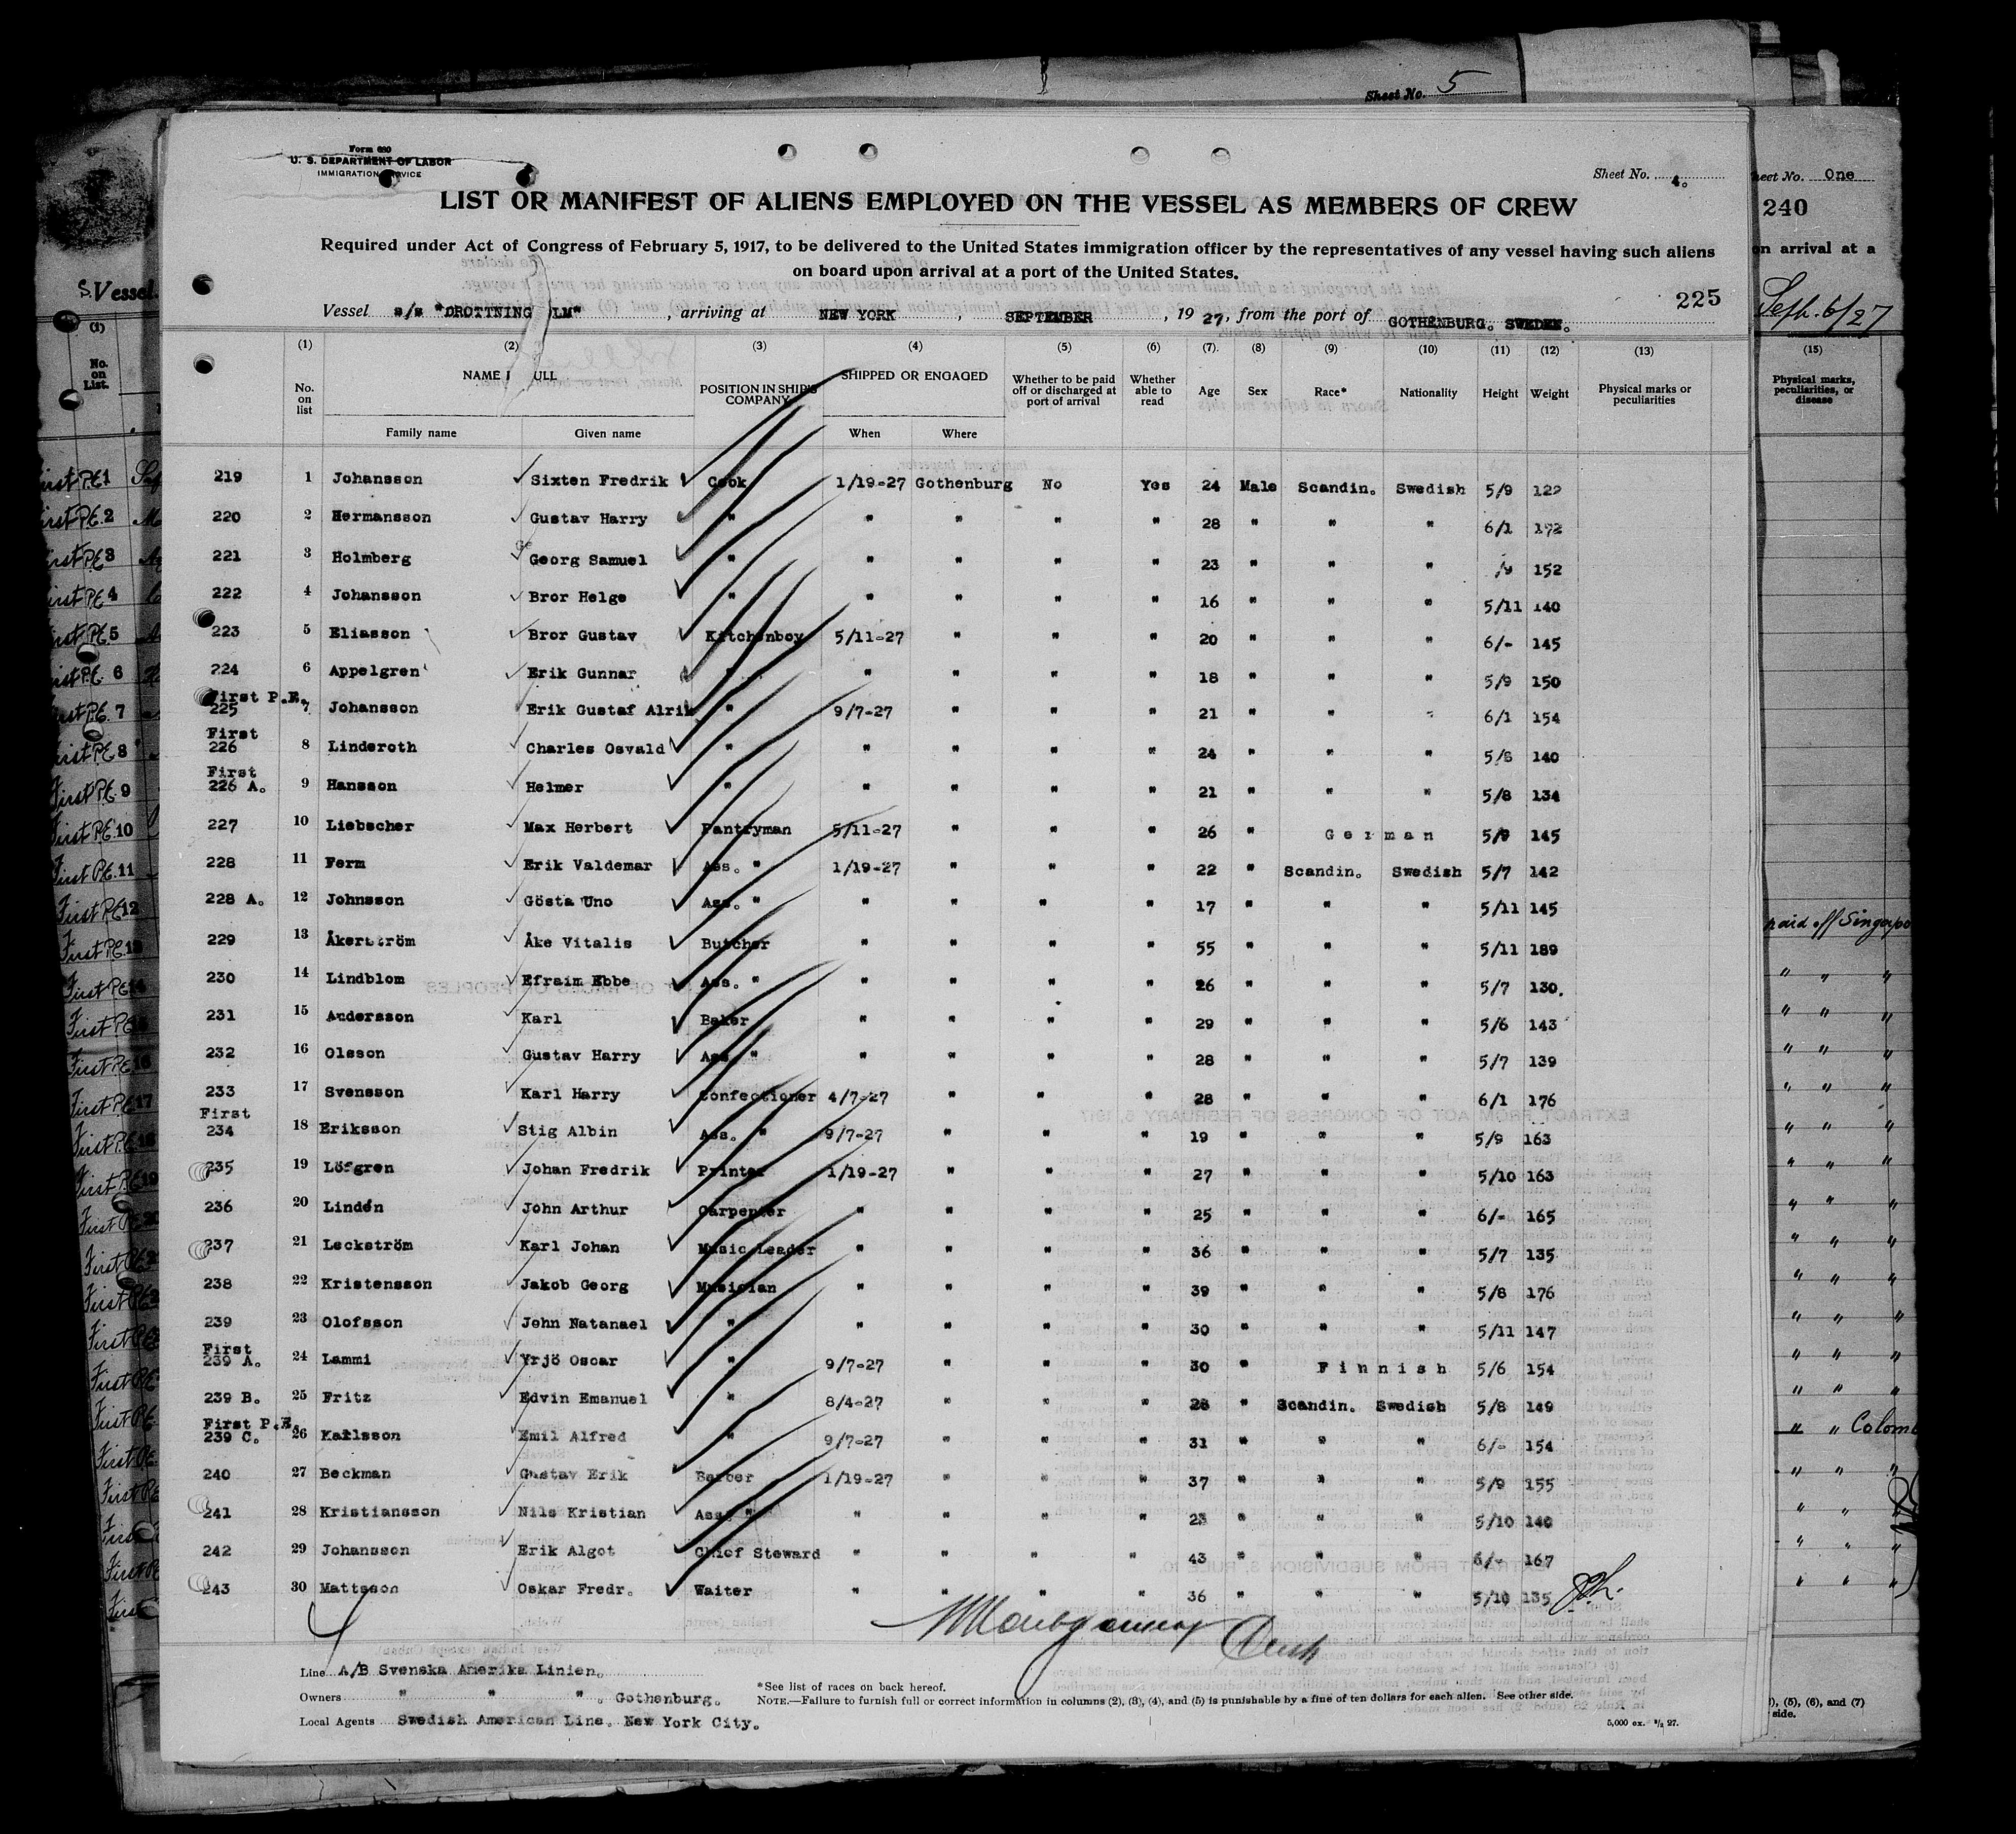 Sheet No. 5
Form 680
U. S. DEPARTMENT OF LABOR
IMMIGRATION SERVICE
Sheet No. 4.
LIST OR MANIFEST OF ALIENS EMPLOYED ON THE VESSEL AS MEMBERS OF CREW
Required under Act of Congress of February 5, 1917, to be delivered to the United States immigration officer by the representatives of any vessel having such aliens
on board upon arrival at a port of the United States.
225
Vessel s/s "DROTTNING LM", arriving at NEW YORK, SEPTEMBER, 1927, from the port of GOTHENBURG. SWEDEN.
(1) (2) (3) (4) (5) (6) (7) (8) (9) (10) (11) (12) (13)
No. on list NAME ULL POSITION IN SHIP'S COMPANY SHIPPED OR ENGAGED Whether to be paid off or discharged at port of arrival Whether able to read Age Sex Race* Nationality Height Weight Physical marks or peculiarities
Family name Given name When Where
219 1 Johansson Sixten Fredrik Cook 1/19-27 Gothenburg No Yes 24 Male Scandin. Swedish 5/9 122
220 2 Hermansson Gustav Harry " " " " " 28 " " " 6/1 172
221 3 Holmberg Georg Samuel " " " " " 23 " " " /9 152
222 4 Johansson Bror Helge " " " " " 16 " " " 5/11 140
223 5 Eliasson Bror Gustav Kitchenboy 5/11-27 " " " 20 " " " 6/- 145
224 6 Appelgren Erik Gunnar " " " " " 18 " " " 5/9 150
First P.E.
225 7 Johansson Erik Gustaf Alrik " 9/7-27 " " " 21 " " " 6/1 154
First
226 8 Linderoth Charles Osvald " " " " " 24 " " " 5/8 140
First
226 A. 9 Hansson Helmer " " " " " 21 " " " 5/8 134
227 10 Liebscher Max Herbert Pantryman 5/11-27 " " " 26 " German 5/9 145
228 11 Ferm Erik Valdemar Ass. " 1/19-27 " " " 22 " Scandin. Swedish 5/7 142
228 A. 12 Johnsson Gösta Uno Ass. " " " " " 17 " " " 5/11 145
229 13 Åkerström Åke Vitalis Butcher " " " " 55 " " " 5/11 189
230 14 Lindblom Efraim Ebbe Ass. " " " " " 26 " " " 5/7 130.
231 15 Andersson Karl Baker " " " " 29 " " " 5/6 143
232 16 Olsson Gustav Harry Ass. " " " " " 28 " " " 5/7 139
233 17 Svensson Karl Harry Confectioner 4/7-27 " " " 28 " " " 6/1 176
First
234 18 Eriksson Stig Albin Ass. " 9/7-27 " " " 19 " " " 5/9 163
235 19 Löfgren Johan Fredrik Printer 1/19-27 " " " 27 " " " 5/10 163
236 20 Lindén John Arthur Carpenter " " " " 25 " " " 6/- 165
237 21 Leckström Karl Johan Music Leader " " " " 36 " " " 5/7 135
238 22 Kristensson Jakob Georg Musician " " " " 39 " " " 5/8 176
239 23 Olofsson John Natanael " " " " " 30 " " " 5/11 147
First
239 A. 24 Lammi Yrjö Oscar " 9/7-27 " " " 30 " Finnish 5/6 154
239 B. 25 Fritz Edvin Emanuel " 8/4-27 " " " 28 " Scandin. Swedish 5/8 149
First P.E.
239 C. 26 Karlsson Emil Alfred " 9/7-27 " " " 31 " " " 6/- 154
240 27 Beckman Gustav Erik Barber 1/19-27 " " " 37 " " " 5/9 155
241 28 Kristiansson Nils Kristian Ass. " " " " " 23 " " " 5/10 140
242 29 Johansson Erik Algot Chief Steward " " " " 43 " " " 6/- 167
243 30 Mattsson Oskar Fredr. Waiter " " " " 36 " " " 5/10 135
Montgomery
Line A/B Svenska Amerika Linien.
Owners " " ". Gothenburg.
Local Agents Swedish American Line. New York City.
*See list of races on back hereof.
NOTE.—Failure to furnish full or correct information in columns (2), (3), (4), and (5) is punishable by a fine of ten dollars for each alien. See other side.
5,000 ex. 8/2 27.
Sheet No. One
240
on arrival at a
Seph. 6/27
(15)
Physical marks, peculiarities, or disease
paid off Singapo
" " Colomb
), (5), (6), and (7)
side.
S. Vessel
(1)
No. on List.
First P.E. 1
First P.E. 2
First P.E. 3
First P.E. 4
First P.E. 5
First P.E. 6
First P.E. 7
First P.E. 8
First P.E. 9
First P.E. 10
First P.E. 11
First P.E. 12